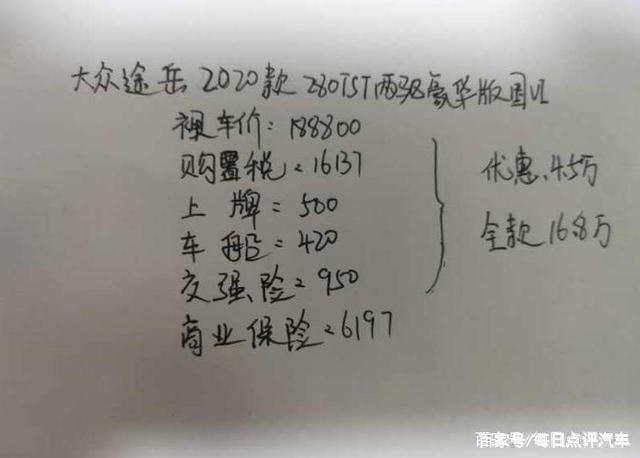 大众途岳 2020款 280TSI两驱豪华版国VI
裸车价: 188800
购置税: 16137
上牌: 500
车船: 420
交强险: 950
商业保险: 6197
优惠.4.5万
全款 16.8万
商家号/每日点评汽车